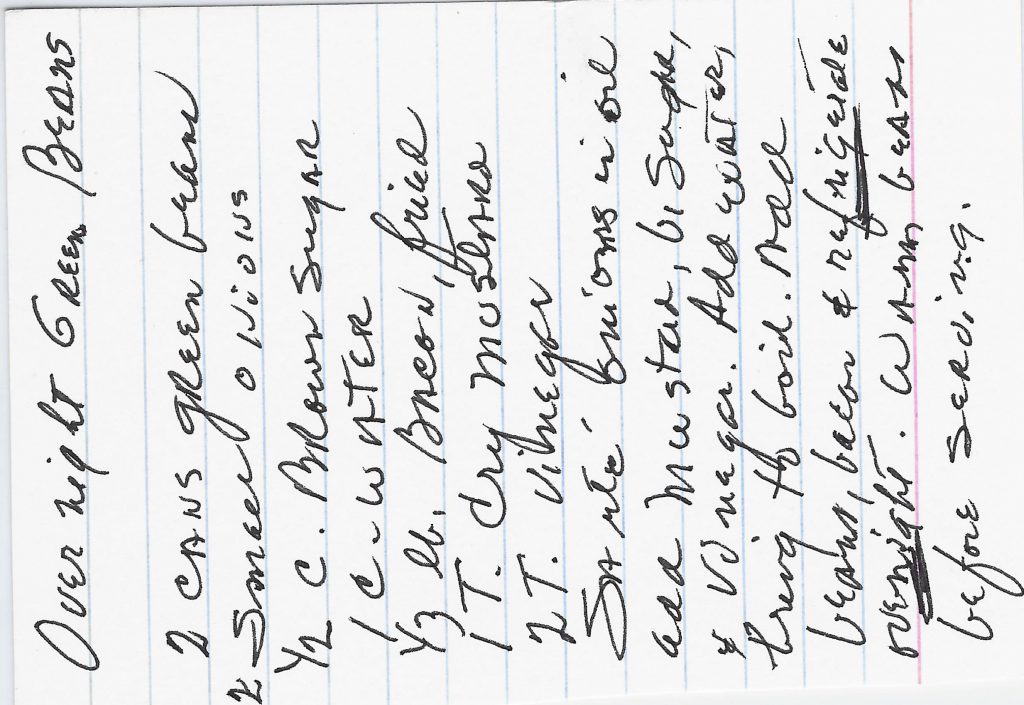 Over night Green Beans
2 cans green beans
2 Small onions
1/2 c. Brown Sugar
1 c - water
1/3 lb. Bacon, fried
1 T. Dry Mustard
2 T. Vinegar
Saute' onions in oil
add mustard, b, Sugar,
& Vinegar. Add water,
bring to boil. Add
beans, bacon & refrigerate
overnight. Warm beans
before serving.